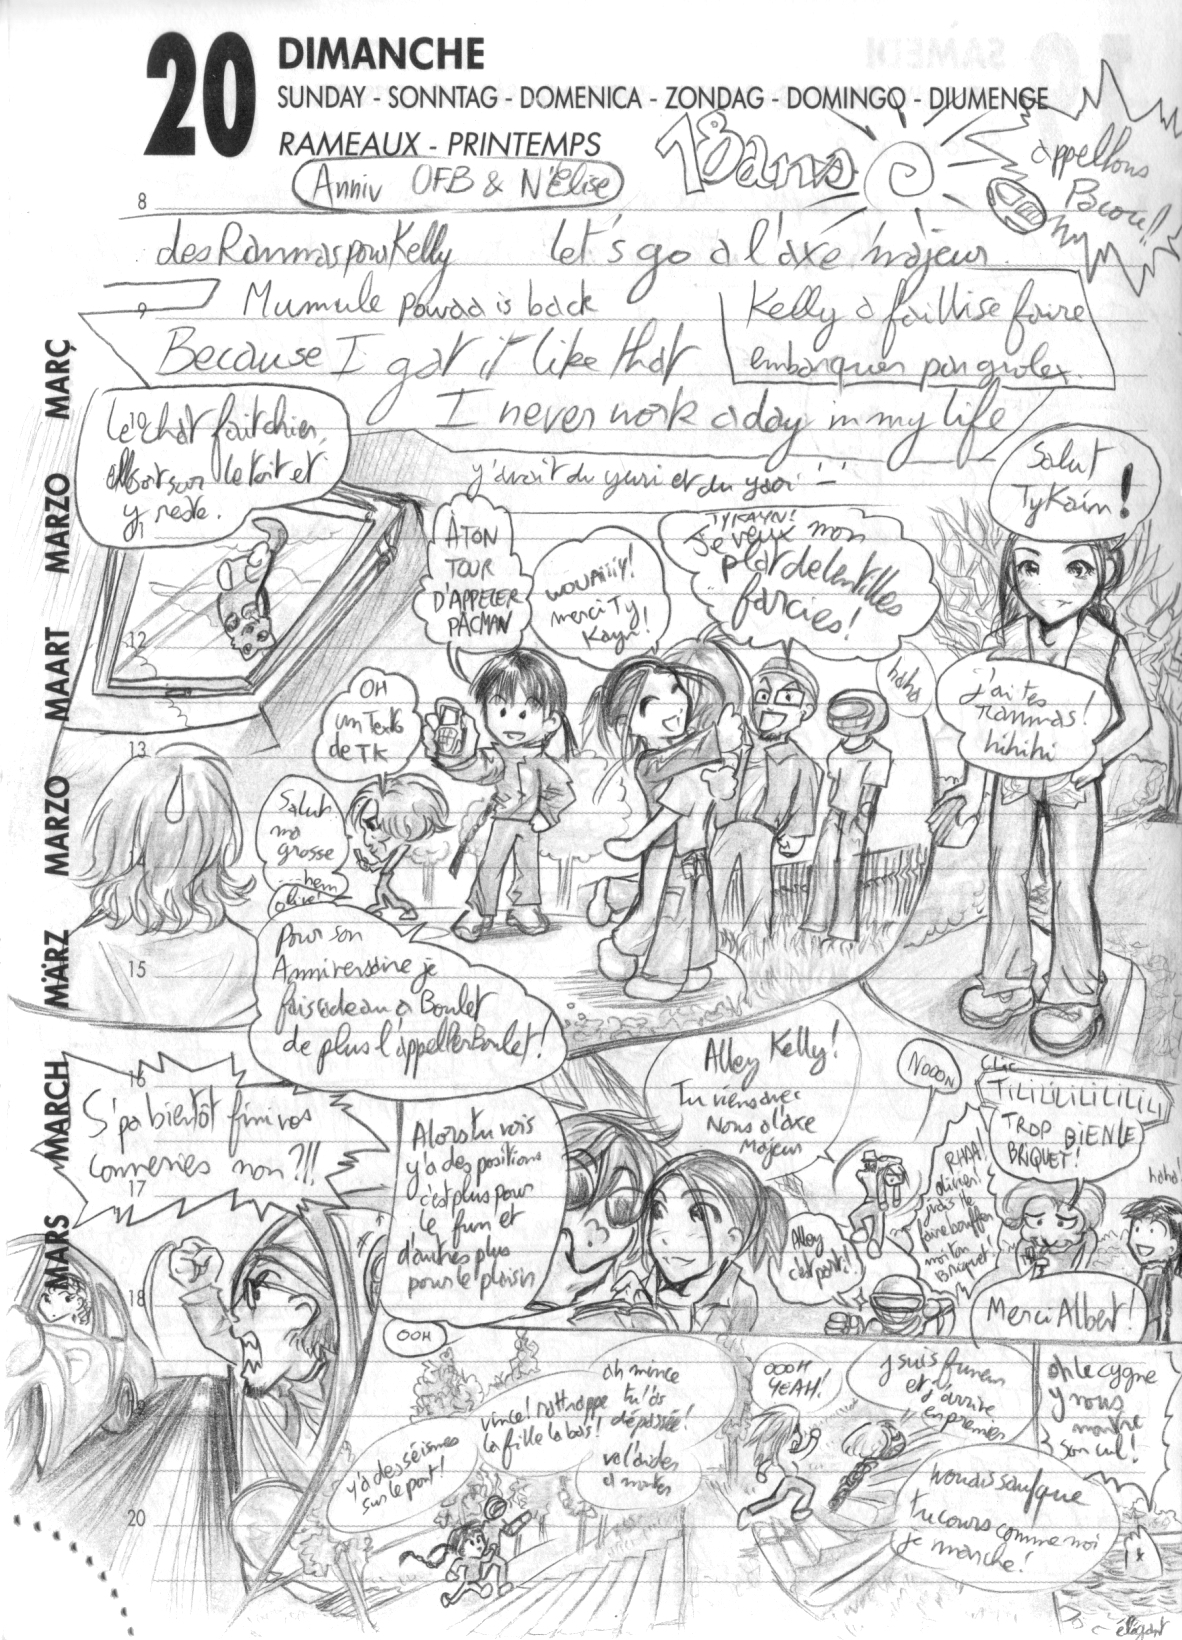 20
DIMANCHE
SUNDAY - SONNTAG - DOMENICA - ZONDAG - DOMINGO - DIUMENGE
RAMEAUX - PRINTEMPS
SAMEDI
18 ans
appellons
Pacore!!
Anniv OFB & N'Elise
8
des Rammas pour Kelly
let's go a l'axe majeur.
9
Mumule powaa is back
Kelly a failli se faire
embarquer par grolex.
Because I got it like that
I never work a day in my life
y'avait du yuri et du yaoi
MARS MARCH MÄRZ MARZO MAART MARZO MARÇ
10
Le chat fait chier,
sort sur le toit et
y reste.
11
12
13
14
15
16
17
18
19
20
À TON
TOUR
D'APPELER
PACMAN
WOUAIIIY!
merci Ty
Kayn!
TYKAYN!
Je veux mon
plat de lentilles
farcies!
haha
Salut
TyKain!
j'ai tes
rammas!
hihihi
OH
un Texto
de TK
Salut
ma
grosse
...hem
olive!
Pour son
Anniversaire je
fais cadeau a Boulet
de plus l'appeller Boulet!
S'pa bientôt fini vos
conneries non?!!
Alors tu vois
y'a des positions
c'est plus pour
le fun et
d'autres plus
pour le plaisir
Alley Kelly!
Tu viens avec
Nous a l'axe
Majeur
NOOON
Alley
c'est parti!
RHAA!
olivier!
j'vais te
faire bouffer
moi ton
Briquet!
Clic
TiLiLiLiLiLiLiLi
TROP BIEN LE
BRIQUET!
haha!
Merci Albert!
OOH
y'a des séismes
sur le pont!
vince! rattrappe
la fille la bas!
ah mince
tu l'as
dépassée!
OOOH
YEAH!
j'suis fumeur
et j'arrive
en premier
wouais sauf que
tu cours comme moi
je marche!
oh le cygne
y nous
montre
son cul!
élégant